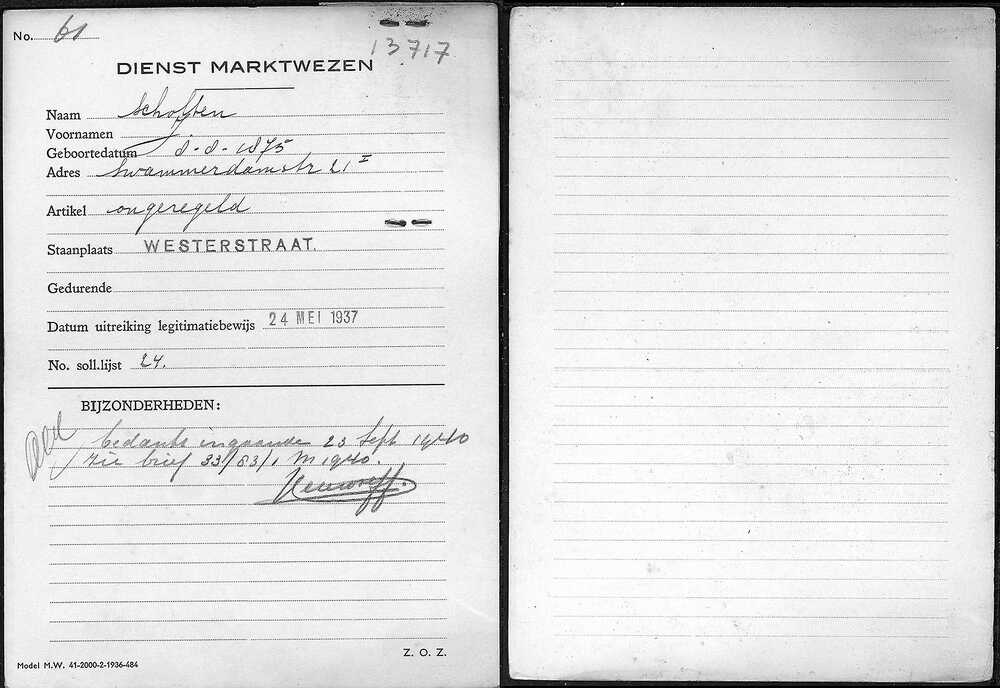 No. 61
13717
DIENST MARKTWEZEN
Naam Scholten
Voornamen J.
Geboortedatum 8-8-1875
Adres Swammerdamstr 21 I
Artikel ongeregeld
Staanplaats WESTERSTRAAT.
Gedurende
Datum uitreiking legitimatiebewijs 24 MEI 1937
No. soll.lijst 24.
BIJZONDERHEDEN:
bedankt ingaande 23 Sept 1940
zie brief 33/83/1 M 1940.
Z. O. Z.
Model M.W. 41-2000-2-1936-484